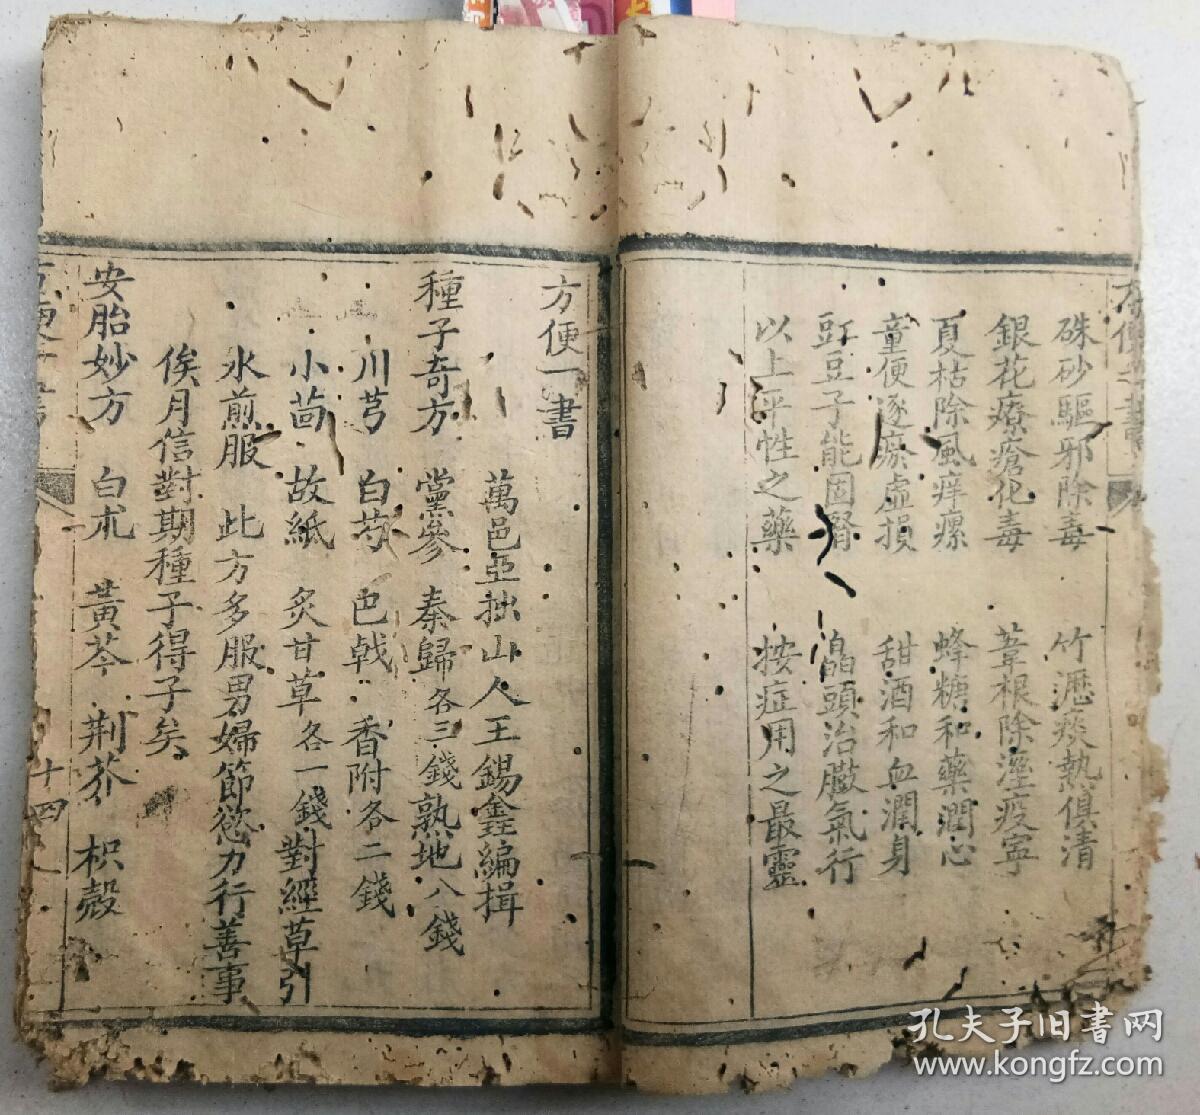 硃砂驅邪除毒 竹瀝痰熱俱清
銀花療瘡化毒 葦根除溼疫寧
夏枯除風痒瘰 蜂糖和藥潤心
童便逐瘀虛損 甜酒和血潤身
豇豆子能固腎 頭治臌氣行
以上平性之藥 按症用之最靈
方便一書
萬邑亞拙山人王錫鑫編揖
種子奇方 黨參 秦歸各三錢熟地八錢
川芎 白芍 巴戟 香附各二錢
小茴 故紙 炙甘草各一錢對經草引
水煎服 此方多服男婦節慾力行善事
俟月信對期種子得子矣
安胎妙方 白朮 黃芩 荆芥 枳殼
十四
孔夫子旧書网
www.kongfz.com